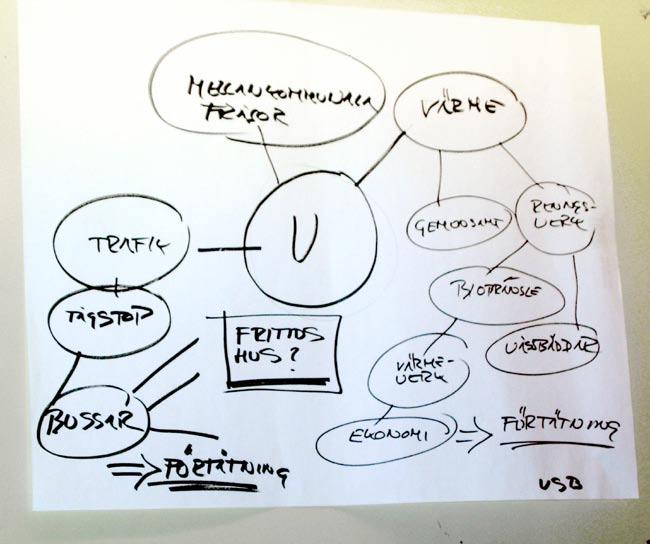 MELLANKOMMUNALA
FRÅGOR
VÄRME
U
TRAFIK
GEMENSAMT
RENINGS-
VERK
TÅGSTOP
BIOBRÄNSLE
FRITIDS
HUS?
VÄRME-
VERK
VASSBÄDDAR
BUSSAR
EKONOMI
⇒ FÖRTÄTNING
⇒ FÖRTÄTNING